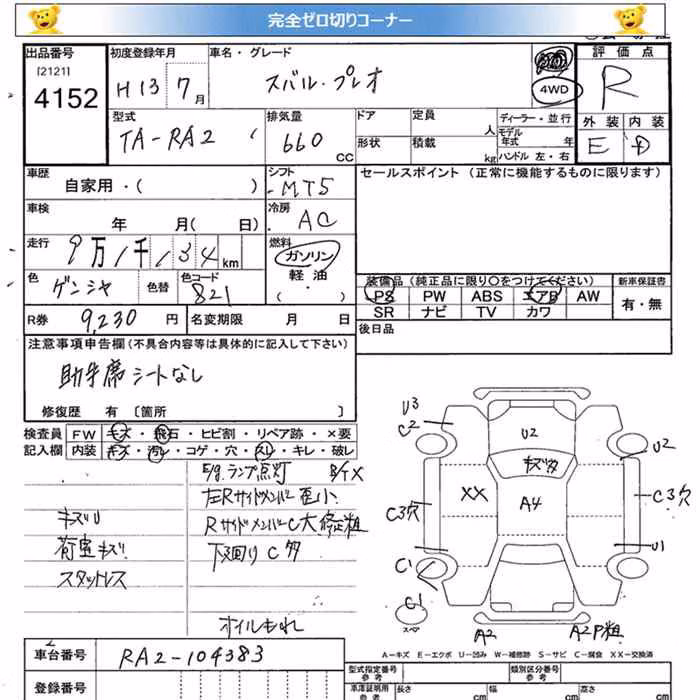 完全ゼロ切りコーナー
出品番号 初度登録年月 車名・グレード 評価点
[2121]
4152 H13 7月 スバル・プレオ 4WD R
型式 排気量 ドア 定員 人 ディーラー・並行 外装 内装
TA-RA2 660 CC 形状 積載 kg モデル年式 年 ハンドル 左・右 E D
車歴 シフト セールスポイント (正常に機能するものに限ります)
自家用・( ) MT5
車検 冷房
年 月( 日) AC
走行 燃料
9万1千134km ガソリン
色 色替 色コード 軽油
ゲンシャ 821 ( ・ )
装備品 (純正品に限り○をつけてください) 新車保証書
PS PW ABS エアB AW 有・無
SR ナビ TV カワ
R券 9,230 円 名変期限 月 日 後日品
注意事項申告欄 (不具合内容等は具体的に記入して下さい)
助手席シートなし
修復歴 有 〔箇所 〕
検査員 FW キズ・飛石・ヒビ割・リペア跡・×要
記入欄 内装 キズ・汚レ・コゲ・穴・スレ・キレ・破レ
E/gランプ点灯
左Rサイドメンバー歪小
キズU RサイドメンバーC大修正粗
荷室キズ 下廻りC多
スタットレス
オイルもれ
U3
C2
U2
キズ多
U2
XX
A4
C3穴
C3穴
C1
U1
C1
スペア
A2
A2P粗
A－キズ E－エクボ U－凹み W－補修跡 S－サビ C－腐食 XX－交換済
車台番号 RA2-104383
登録番号
型式指定番号 参考 類別区分番号 参考
車庫証明用 参考 長さ cm 幅 cm 高さ cm